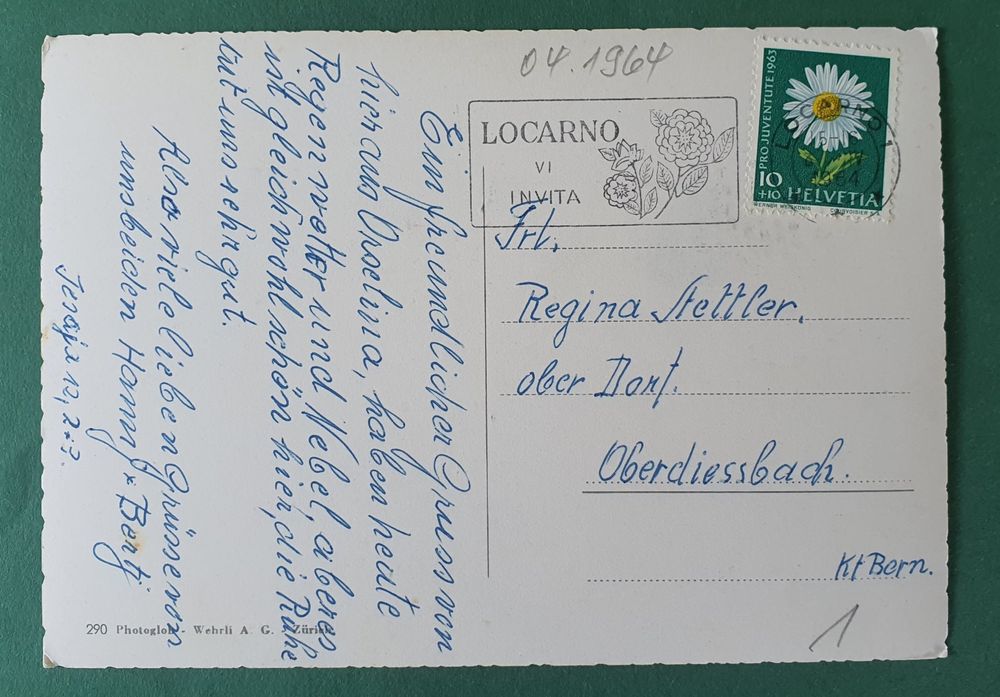 04.1964
LOCARNO
VI
INVITA
PRO JUVENTUTE 1963
10
+10 HELVETIA
COURVOISIER
LOCARNO 1
Frl.
Regina Stettler.
ober Dorf.
Oberdiessbach.
Kt Bern.
1
Ein freundlicher Gruss von
hier aus Unselina, haben heute
Regenwetter und Nebel, aber es
ist gleichwohl schön hier, die Ruhe
tut uns sehr gut.
Also viele lieben Grüsse von
uns beiden Hanny + Berty
290 Photoglob - Wehrli A. G. Zürich